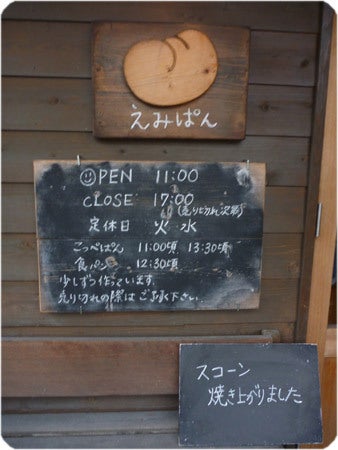 えみぱん
OPEN 11:00
CLOSE 17:00
(売り切れ次第)
定休日 火 水
こっぺぱん 11:00頃 13:30頃
食パン 12:30頃
少しずつ作っています。
売り切れの際はご了承下さい。
スコーン
焼き上がりました